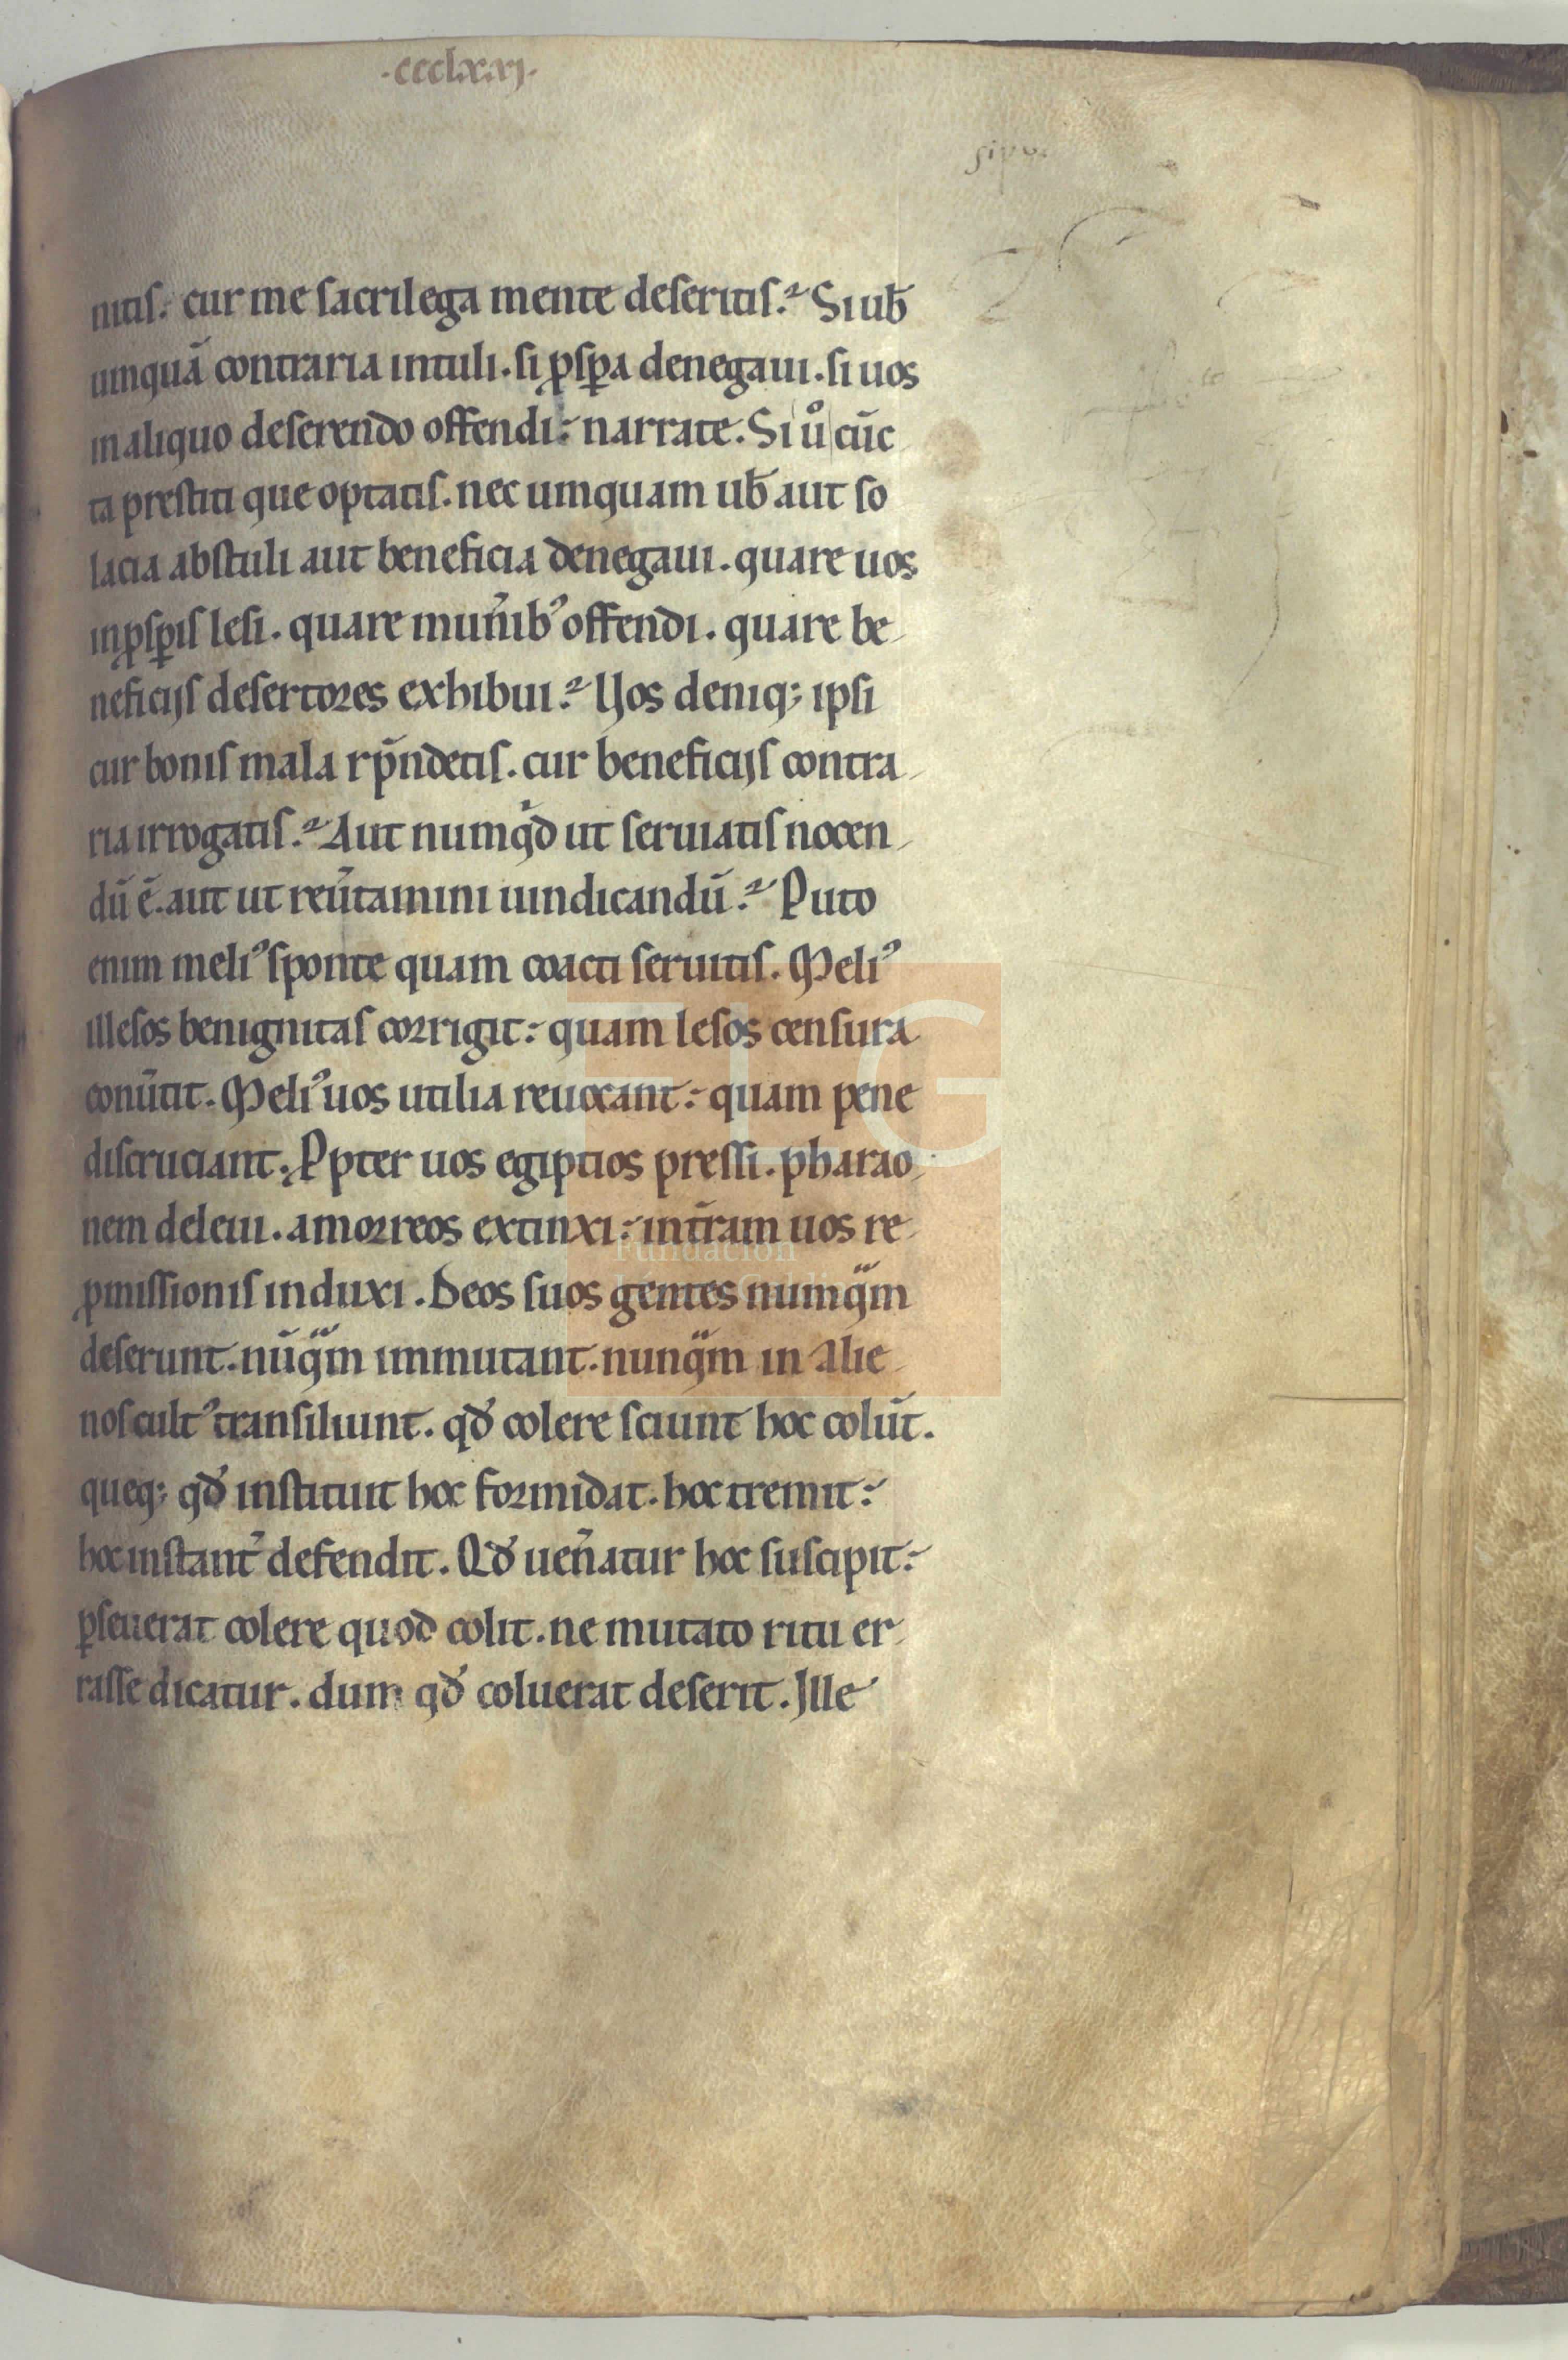 ·ccclxxj·
sipo
nitis: cur me sacrilega mente deseritis? Si ub̄
umquā contraria intuli. si ꝓsꝑa denegaui. si uos
in aliquo deserendo offendi: narrate. Si uͦ cūc
ta prestiti que optatis. nec umquam ub̄ aut so
lacia abstuli aut beneficia denegaui. quare uos
inꝓsꝑis lesi. quare mun̄ibꝰ offendi. quare be
neficijs desertores exhibui? Vos deniq; ipsi
cur bonis mala rp̄ndetis. cur beneficijs contra
ria irrogatis? Aut numqͥd ut seruiatis nocen
dū ē. aut ut reūtamini uindicandū? Puto
enim meliꝰ sponte quam coacti seruitis. Meliꝰ
illesos benignitas corrigit: quam lesos censura
conūtit. Meliꝰ uos utilia reuocant: quam pene
discruciant. Ꝓpter uos egiptios pressi. pharao
nem deleui. amorreos extinxi: int̄ram uos re
ꝓmissionis induxi. Deos suos gentes numqͣm
deserunt. nūqͣm immutant. nunqͣm in alie
nos cultꝰ transiliunt. qd̓ colere sciunt hoc colūt.
queq; qd̓ instituit hoc formidat. hoc tremit:
hoc instant̄ defendit. Qd̓ uen̄atur hoc suscipit:
ꝑseuerat colere quod colit. ne mutato ritu er
rasse dicatur. dum qd̓ coluerat deserit. Ille
TG
Fundación